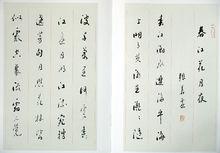 春江花月夜
張若虛
春江潮水連海平海
上明月共潮生灩灩隨
波千萬里何處春
江無月明江流宛轉
遶芳甸月照花林皆
似霰空裏流霜不覺